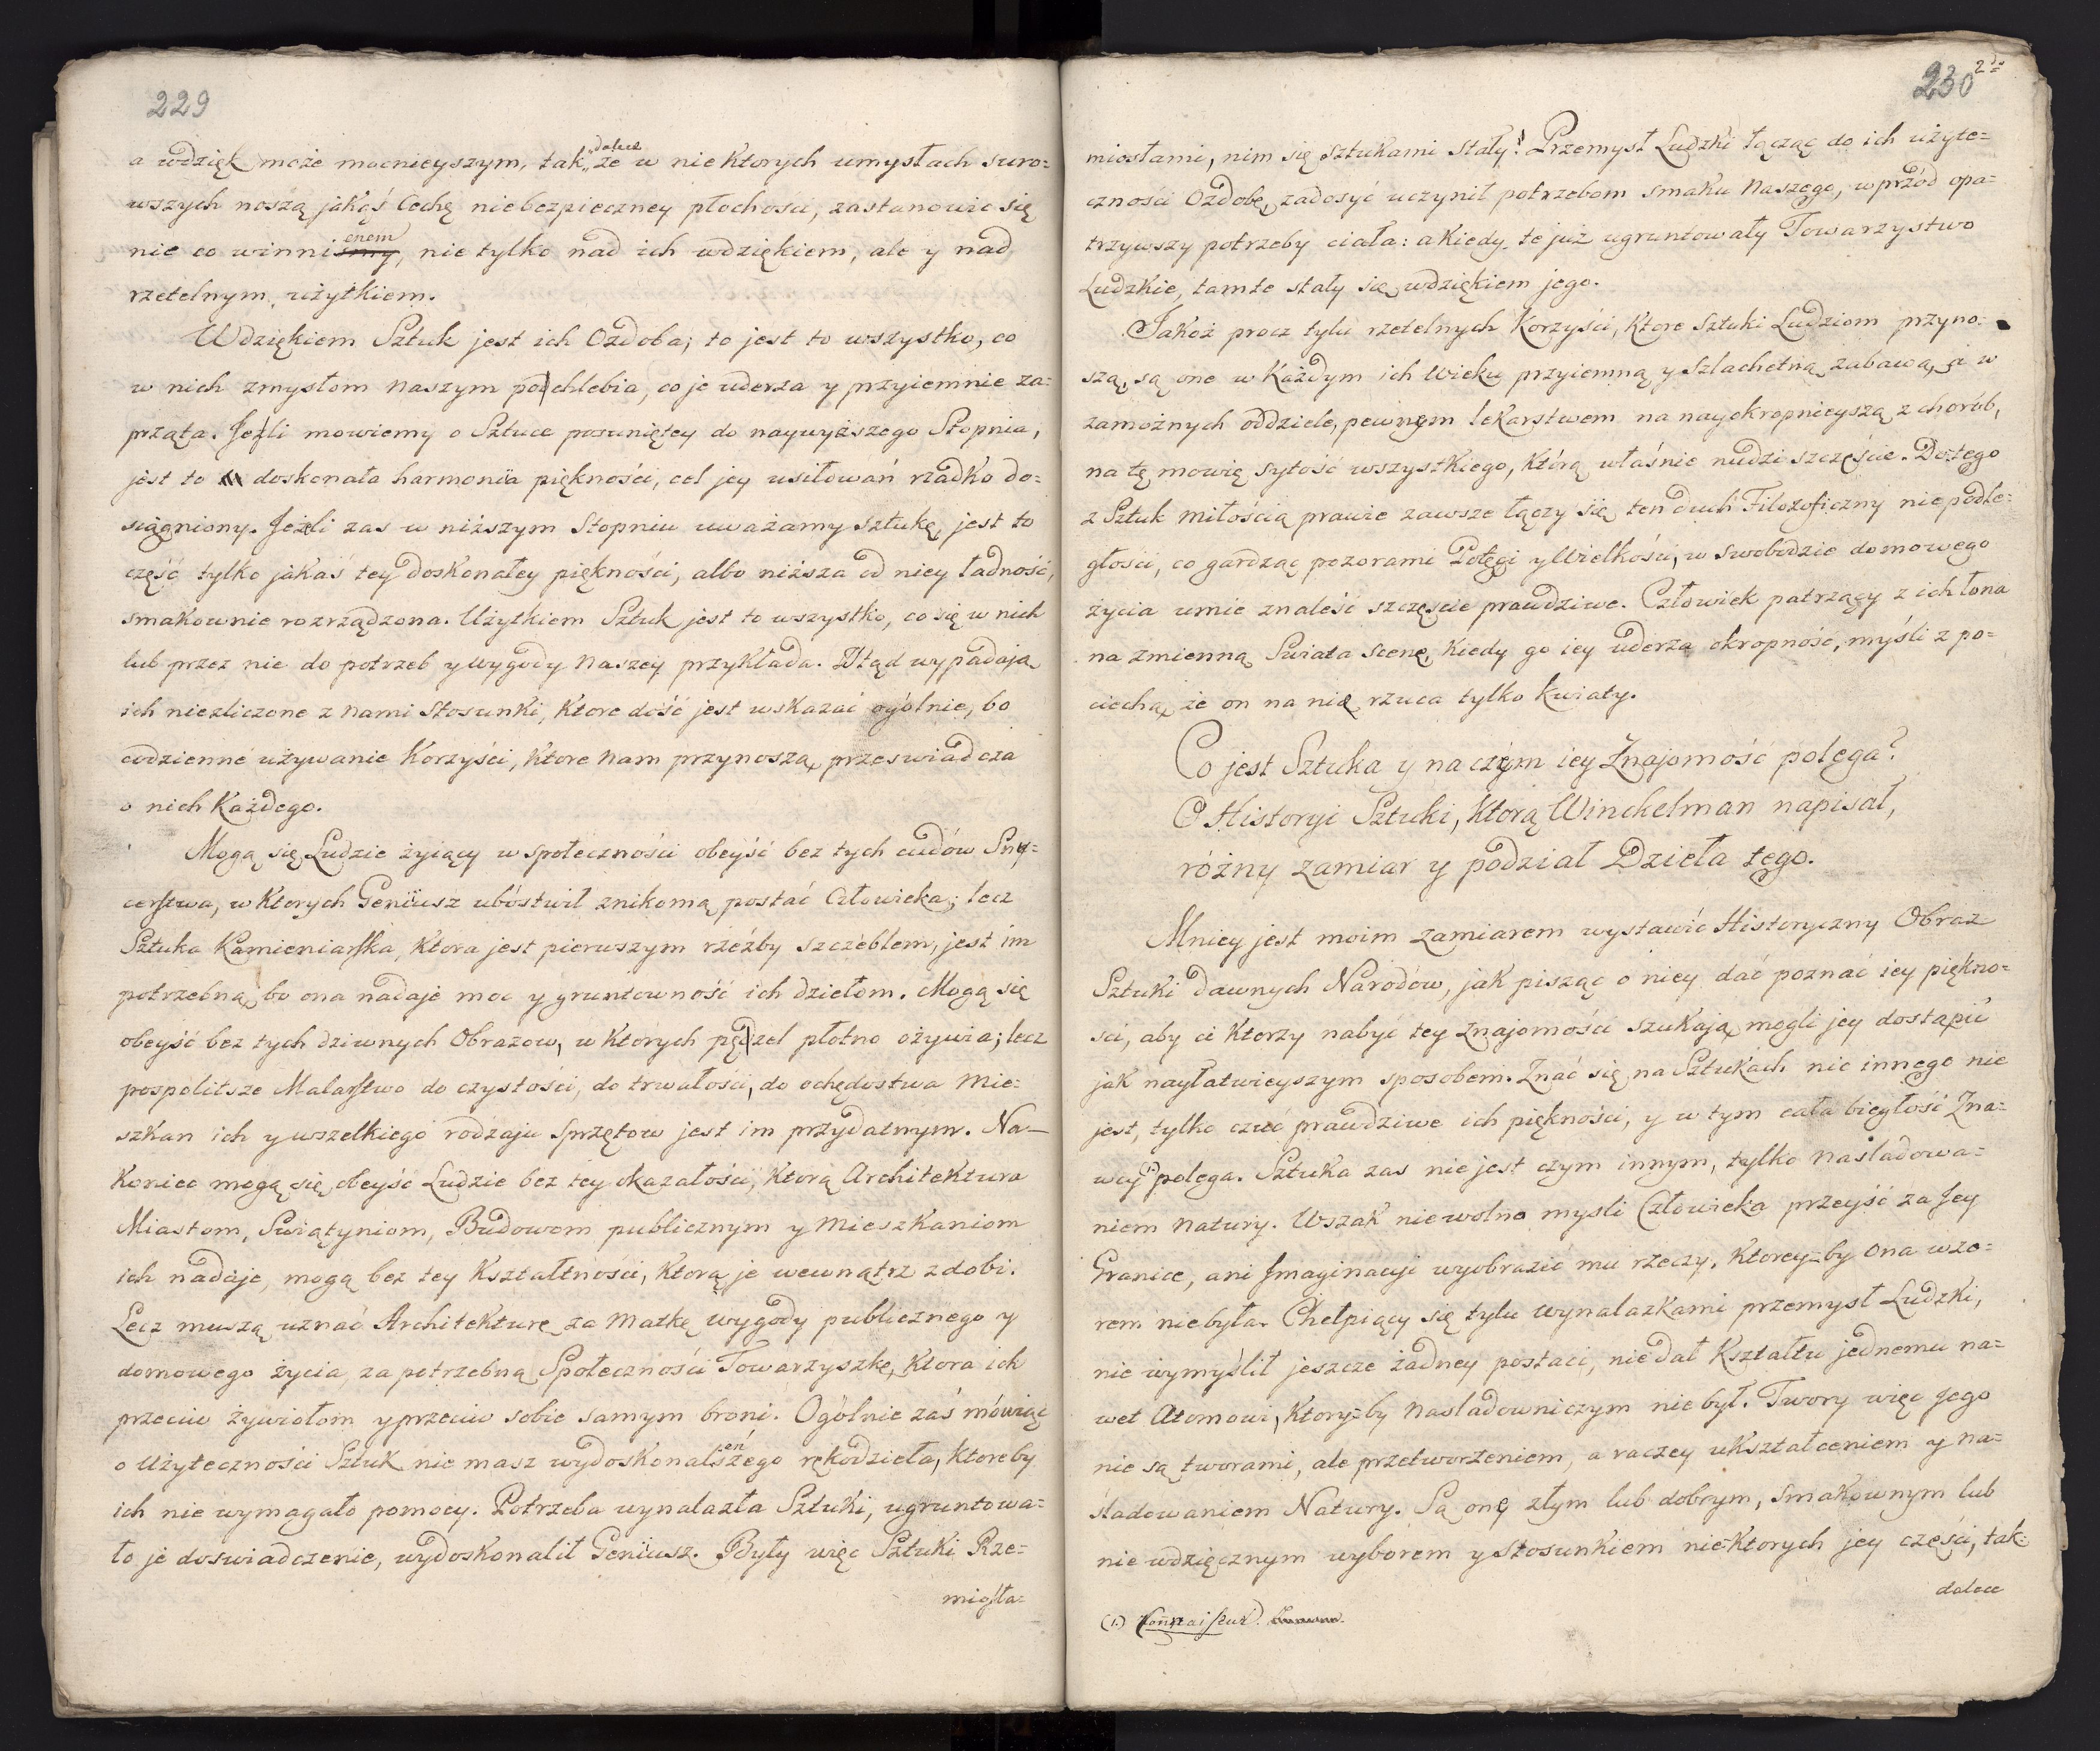 229
a wdzięk może mocnieyszym, tak dalece że w nie Ktorych umysłach suro=
wszych noszą jakąś Cechę niebezpieczney płochości, zastanowić się
nie co winni enem smy, nie tylko nad ich wdziękiem, ale y nad
rzetelnym użytkiem.
Wdziękiem Sztuk jest ich Ozdoba; to jest to wszystko, co
w nich zmysłom naszym pochlebia, co je uderza y przyiemnie za=
prząta. Jeżli mowiemy o Sztuce posuniętey do naywyższego Stopnia,
jest to doskonała harmonia piękności, cel jey usiłowań rzadko do=
siągniony. Jeżeli zas w niższym Stopniu uważamy Sztukę, jest to
część tylko jakaś tey doskonałey piękności, albo niższa od niey ładność,
smakownie rozrządzona. Użytkiem Sztuk jest to wszystko, co się w nich
lub przez nie do potrzeb y wygody naszey przykłada. Ztąd wypadają
ich niezliczone z nami Stosunki, Ktore dość jest wskazać ogólnie, bo
codzienne używanie Korzyści, Ktore nam przynoszą, przeswiadcza
o nich Każdego.
Mogą się Ludzie żyiący w społeczności obeyść bez tych cudów Sny=
cerstwa, w Ktorych Geniusz ubóstwił znikomą postać Człowieka; lecz
Sztuka Kamieniarska, Ktora jest pierwszym rzeźby szczeblem, jest im
potrzebną, bo ona nadaje moc y gruntowność ich dziełom. Mogą się
obeyść bez tych dziwnych Obrazow, w Ktorych pęzel płotno ożywia; lecz
pospolitsze Malarstwo do czystości, do trwałości, do ochędostwa mie=
szkan ich y wszelkiego rodzaju Sprzętow jest im przydatnym. Na=
koniec mogą się obeyść Ludzie bez tey okazałości, Ktorą Architektura
Miastom, Swiątyniom, Budowom publicznym y mieszkaniom
ich nadaje, mogą bez tey Kształtności, Ktorą je wewnątrz zdobi.
Lecz muszą uznać Architekturę za matkę wygody publicznego y
domowego życia, za potrzebną Społeczności Towarzyszkę, Ktora ich
przeciw żywiołom y przeciw sobie samym broni. Ogólnie zaś mówiąc
o Użyteczności Sztuk nie masz wydoskonalszego en rękodzieła, Ktoreby
ich nie wymagało pomocy. Potrzeba wynalazła Sztuki, ugruntowa=
ło je doswiadczenie, wydoskonalił Geniusz. Były więc Sztuki Rze=
miosła=
230
2do
miosłami, nim się Sztukami stały! Przemysł Ludzki łącząc do ich użyte=
czności Ozdobę, zadosyć uczynił potrzebom smaku naszego, wprzód opa=
trzywszy potrzeby ciała: a Kiedy te już ugruntowały Towarzystwo
Ludzkie, tamte stały się wdziękiem jego.
Jakoż procz tylu rzetelnych Korzyści, Ktore Sztuki Ludziom przyno=
szą, są one w Każdym ich Wieku przyiemną y Szlachetną zabawą, a w
zamożnych oddziele, pewnym lekarstwem na nayokropnieyszą z chorób,
na tę mowię sytość wszystkiego, Którą właśnie nudzi szczęście. Do tego
z Sztuk miłością prawie zawsze łączy się ten duch Filozoficzny niepodle=
głości, co gardząc pozorami Potęgi y Wielkości, w Swobodzie domowego
życia umie znaleść szczęscie prawdziwe. Człowiek patrzący z ich łona
na zmienną Swiata Scenę, Kiedy go iey uderza okropność, myśli z po=
ciechą, że on na nię rzuca tylko kwiaty.
Co jest Sztuka y na czym iey Znajomość polega?
O Historyi Sztuki, Ktorą Winckelman napisał,
różny zamiar y podział Dzieła tego.
Mniey jest moim zamiarem wystawić Historyczny Obraz
Sztuki dawnych Narodów, jak pisząc o niey dać poznać iey piękno=
sci, aby ci Ktorzy nabyć tey Znajomości szukają, mogli jey dostąpić
jak nayłatwieyszym sposobem. Znać się na Sztukach nic innego nie
jest, tylko czuć prawdziwe ich piękności, y w tym cała biegłość Zna=
wcy (1) polega. Sztuka zas nie jest czym innym, tylko nasladowa=
niem Natury. Wszak niewolno mysli Człowieka przeyść za Jey
Granice, ani Jmaginacyi wyobrazić mu rzeczy, Ktorey=by ona wzo=
rem niebyła. Chełpiący się tylu wynalazkami przemysł Ludzki,
nie wymyślił jeszcze żadney postaci, nie dał Kształtu jednemu na=
wet Atomowi, Ktory=by nasladowniczym nie był. Twory więc Jego
nie są tworami, ale przetworzeniem, a raczey ukształceniem y na=
sladowaniem Natury. Są onę złym lub dobrym, smakownym lub
nie wdzięcznym wyborem y Stosunkiem nie=Ktorych jey części, tak=
dalece
(1.) Connaisseur.